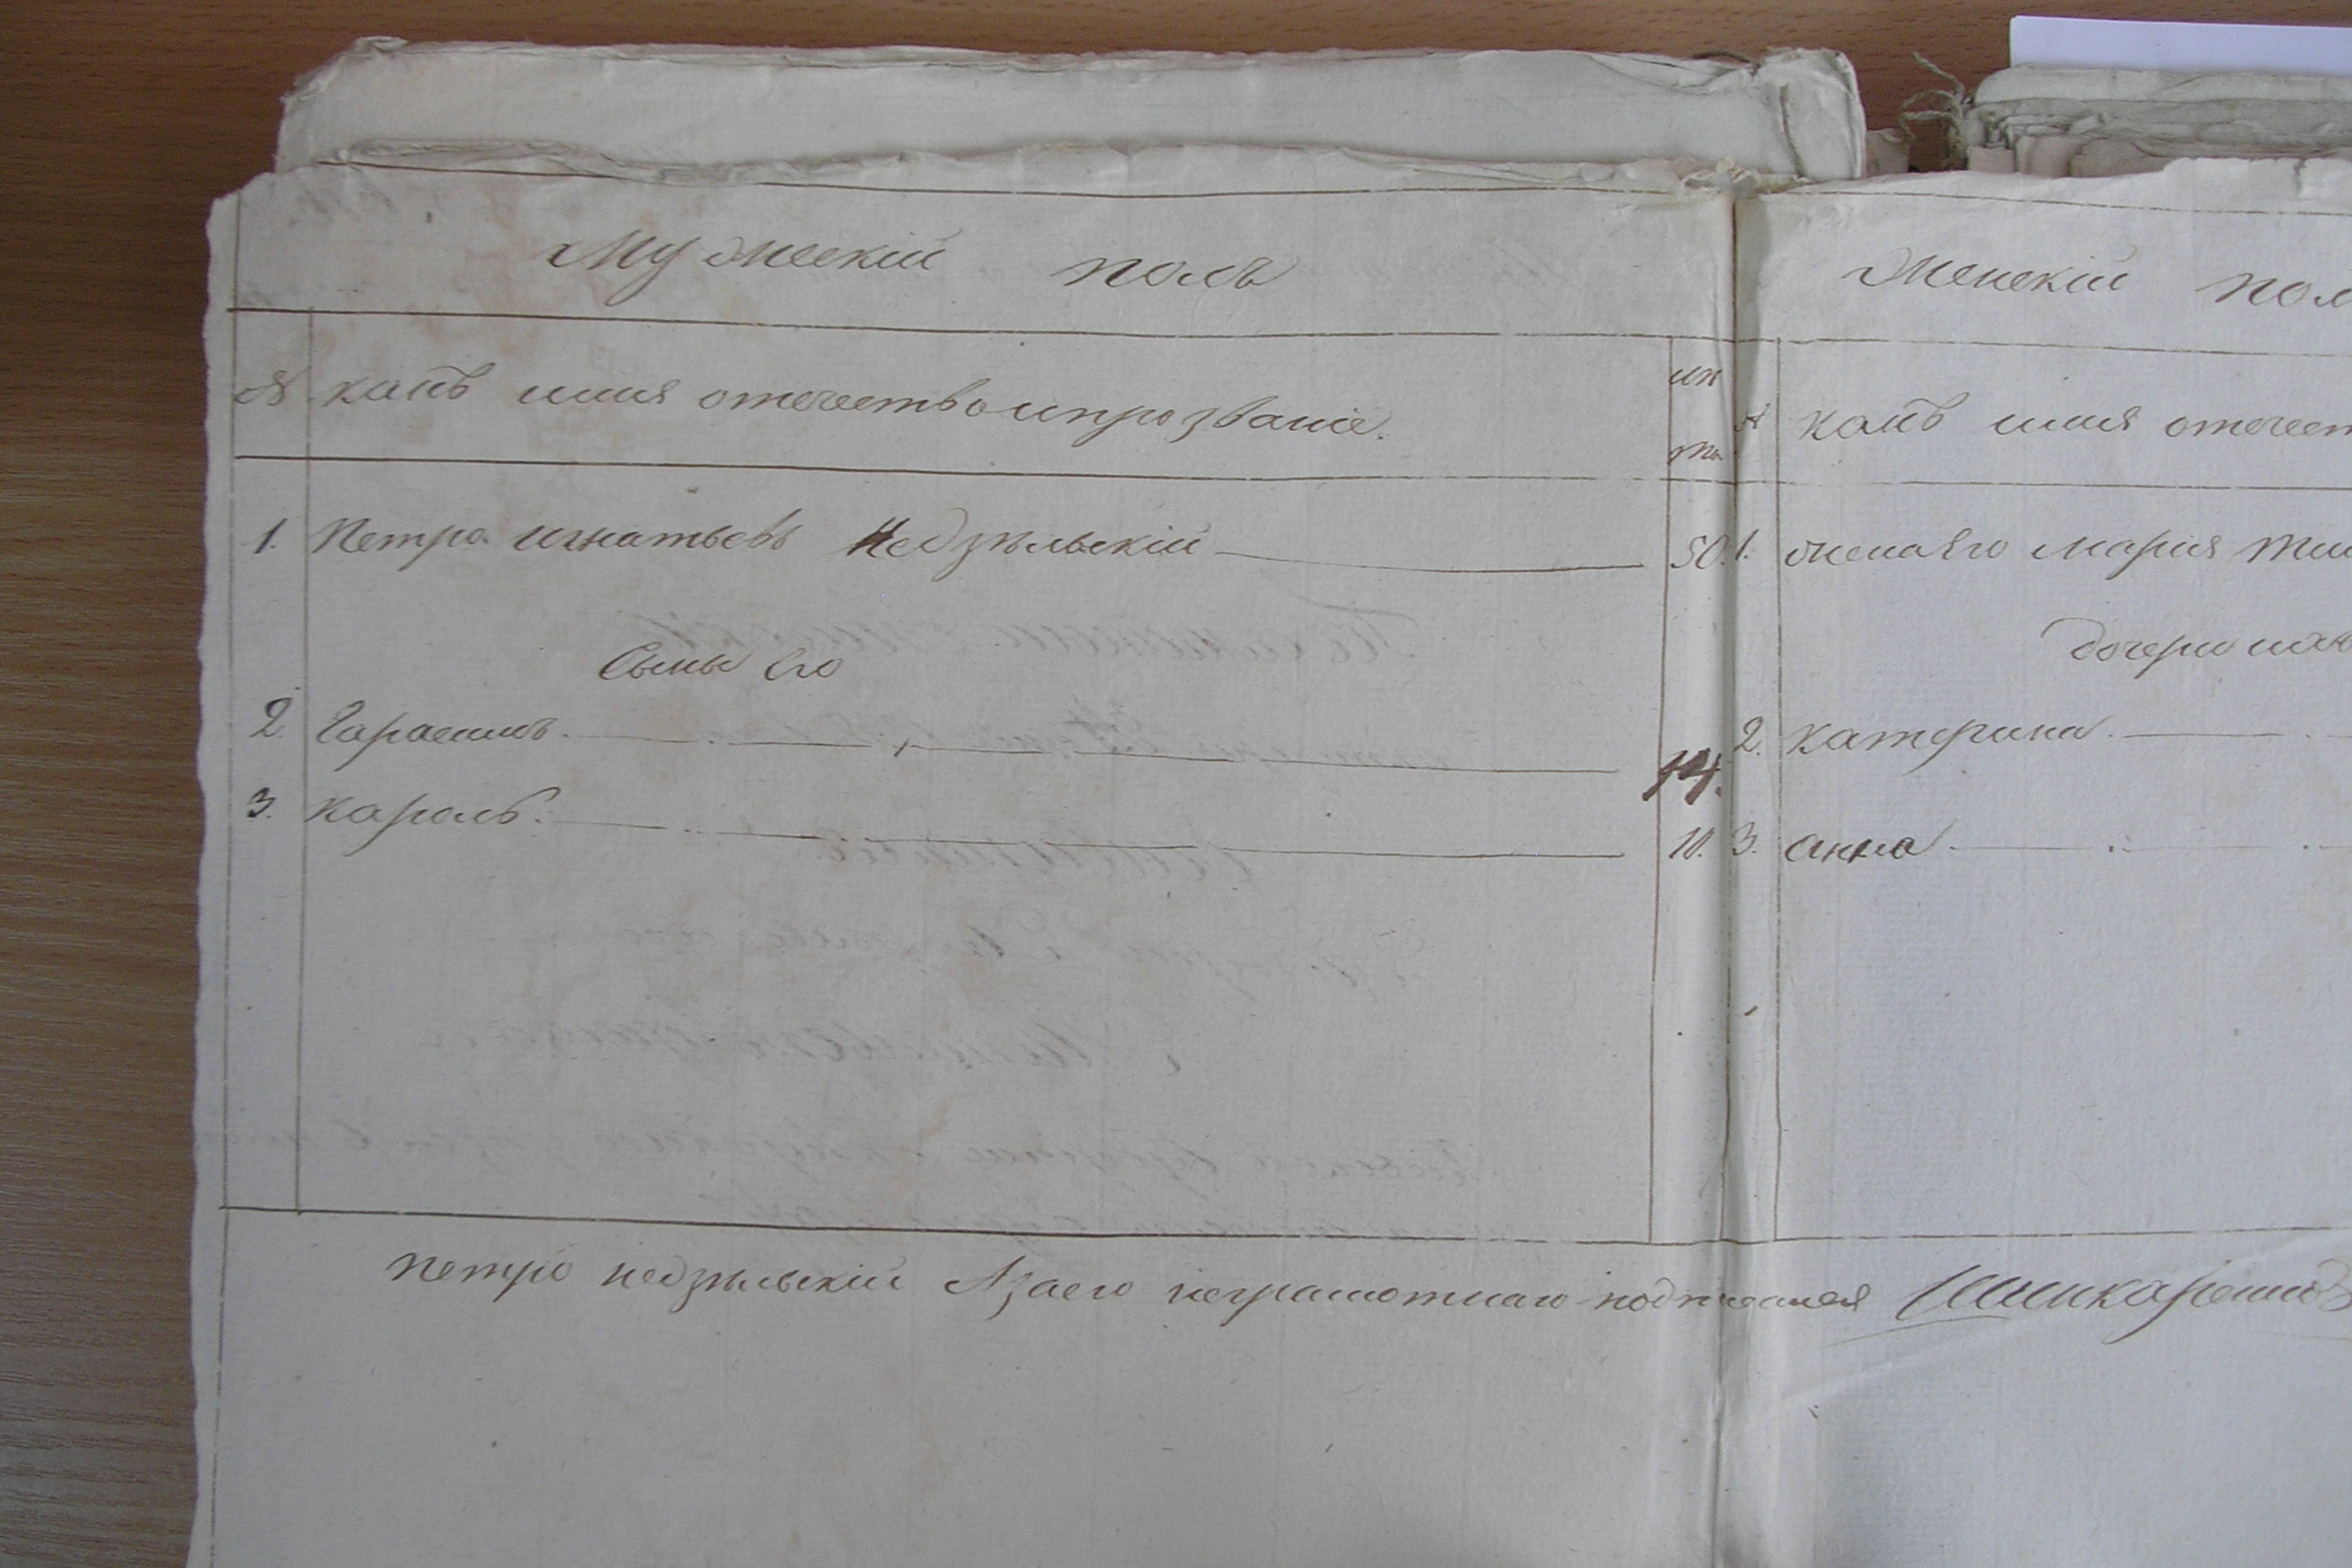 Мужескій полъ
№ какъ имя отечество и прозваніе.
1. Петро Игнатьевъ Недзѣльскій 50.
Сыны его
2. Гарасимъ 14.
3. Кароль 10.
Женскій пол
№ какъ имя отечест
1. жена его Марія
дочери ихъ
2. Катерина
3. Анна
Петро Недзѣльскій А за его неграмотнаго подписался